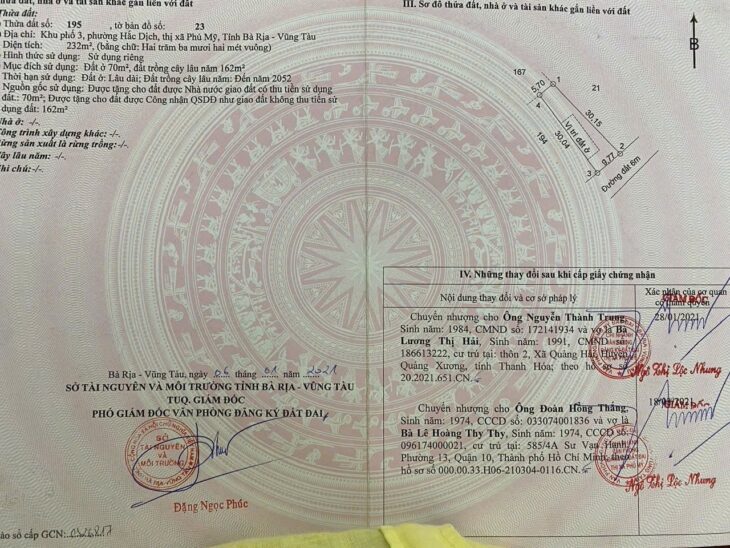 thửa đất, nhà ở và tài sản khác gắn liền với đất
Thửa đất:
Thửa đất số: 195 , tờ bản đồ số: 23
Địa chỉ: Khu phố 3, phường Hắc Dịch, thị xã Phú Mỹ, Tỉnh Bà Rịa - Vũng Tàu
Diện tích: 232m², (bằng chữ: Hai trăm ba mươi hai mét vuông)
Hình thức sử dụng: Sử dụng riêng
Mục đích sử dụng: Đất ở 70m², đất trồng cây lâu năm 162m²
Thời hạn sử dụng: Đất ở: Lâu dài; Đất trồng cây lâu năm: Đến năm 2052
Nguồn gốc sử dụng: Được tặng cho đất được Nhà nước giao đất có thu tiền sử
đất.: 70m²; Được tặng cho đất được Công nhận QSDĐ như giao đất không thu tiền sử
dụng đất: 162m²
Nhà ở: -/-.
Công trình xây dựng khác: -/-.
Rừng sản xuất là rừng trồng: -/-.
Cây lâu năm: -/-
Ghi chú: -/-
Bà Rịa - Vũng Tàu, ngày 06 tháng 01 năm 2021
SỞ TÀI NGUYÊN VÀ MÔI TRƯỜNG TỈNH BÀ RỊA - VŨNG TÀU
TUQ. GIÁM ĐỐC
PHÓ GIÁM ĐỐC VĂN PHÒNG ĐĂNG KÝ ĐẤT ĐAI
SỞ
TÀI NGUYÊN
VÀ
MÔI TRƯỜNG
Đặng Ngọc Phúc
vào sổ cấp GCN:
III. Sơ đồ thửa đất, nhà ở và tài sản khác gắn liền với đất
B
167
5.70
1
21
4
30.15
Vị trí đất ở
194
30.04
2
9.77
3
Đường đất 6m
IV. Những thay đổi sau khi cấp giấy chứng nhận
Nội dung thay đổi và cơ sở pháp lý
Xác nhận của cơ quan
có thẩm quyền
GIÁM ĐỐC
Chuyển nhượng cho Ông Nguyễn Thành Trung,
28/01/2021
Sinh năm: 1984, CMND số: 172141934 và vợ là Bà
Lương Thị Hải, Sinh năm: 1991, CMND số:
186613222, cư trú tại: thôn 2, Xã Quảng Hải, Huyện
Quảng Xương, tỉnh Thanh Hóa; theo hồ sơ số
20.2021.651.CN.
Ngô Thị Lộc Nhung
Chuyển nhượng cho Ông Đoàn Hồng Thắng,
Sinh năm: 1974, CCCD số: 033074001836 và vợ là
Bà Lê Hoàng Thy Thy, Sinh năm: 1974, CCCD số:
096174000021, cư trú tại: 585/4A Sư Vạn Hạnh,
Phường 13, Quận 10, Thành phố Hồ Chí Minh; theo
hồ sơ số 000.00.33.H06-210304-0116.CN.
Ngô Thị Lộc Nhung